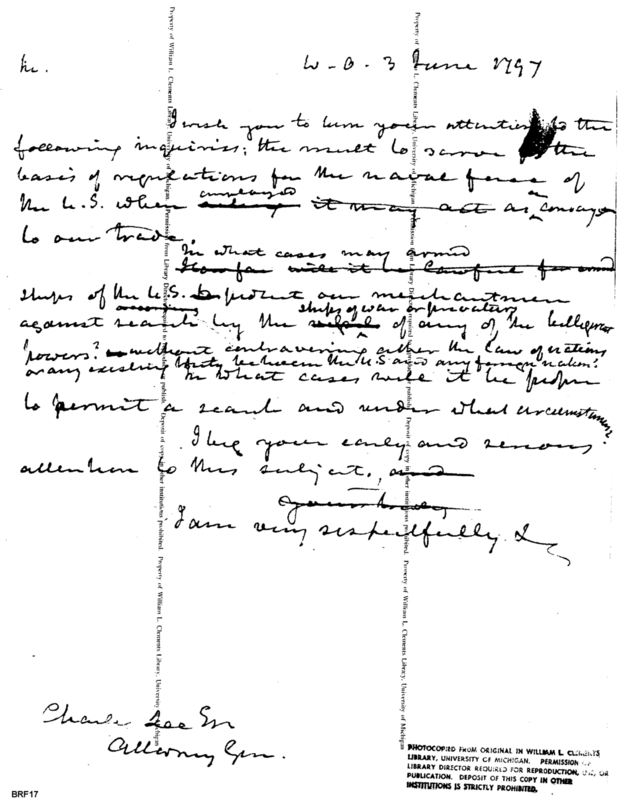 Sir.
W - O - 3 June 1797
I wish you to turn your attention to the
following inquiries; the result to serve as the
basis of regulations for the naval force of
the U.S. when employed it may act as a convoy
to our trade.
In what cases may armed
How far will it be lawful for armed
ships of the U.S. to protect our merchantmen
ships of war or privateers
against search by the vessels of any of the belligerent
powers? without contravening either the law of nations
or any existing treaty between the U.S. and any foreign nation?
In what cases will it be proper
to permit a search and under what circumstances?
I beg your early and serious
attention to this subject., and
I am very respectfully &
Charles Lee Esq
Attorney Gen.
PHOTOCOPIED FROM ORIGINAL IN WILLIAM L. CLEMENTS
LIBRARY, UNIVERSITY OF MICHIGAN. PERMISSION OF
LIBRARY DIRECTOR REQUIRED FOR REPRODUCTION, USE, OR
PUBLICATION. DEPOSIT OF THIS COPY IN OTHER
INSTITUTIONS IS STRICTLY PROHIBITED.
BRF17
Property of William L. Clements Library, University of Michigan. Permission from Library Director required to publish. Deposit of copy in other institutions prohibited. Property of William L. Clements Library, University of Michigan
Property of William L. Clements Library, University of Michigan. Permission from Library Director required to publish. Deposit of copy in other institutions prohibited. Property of William L. Clements Library, University of Michigan